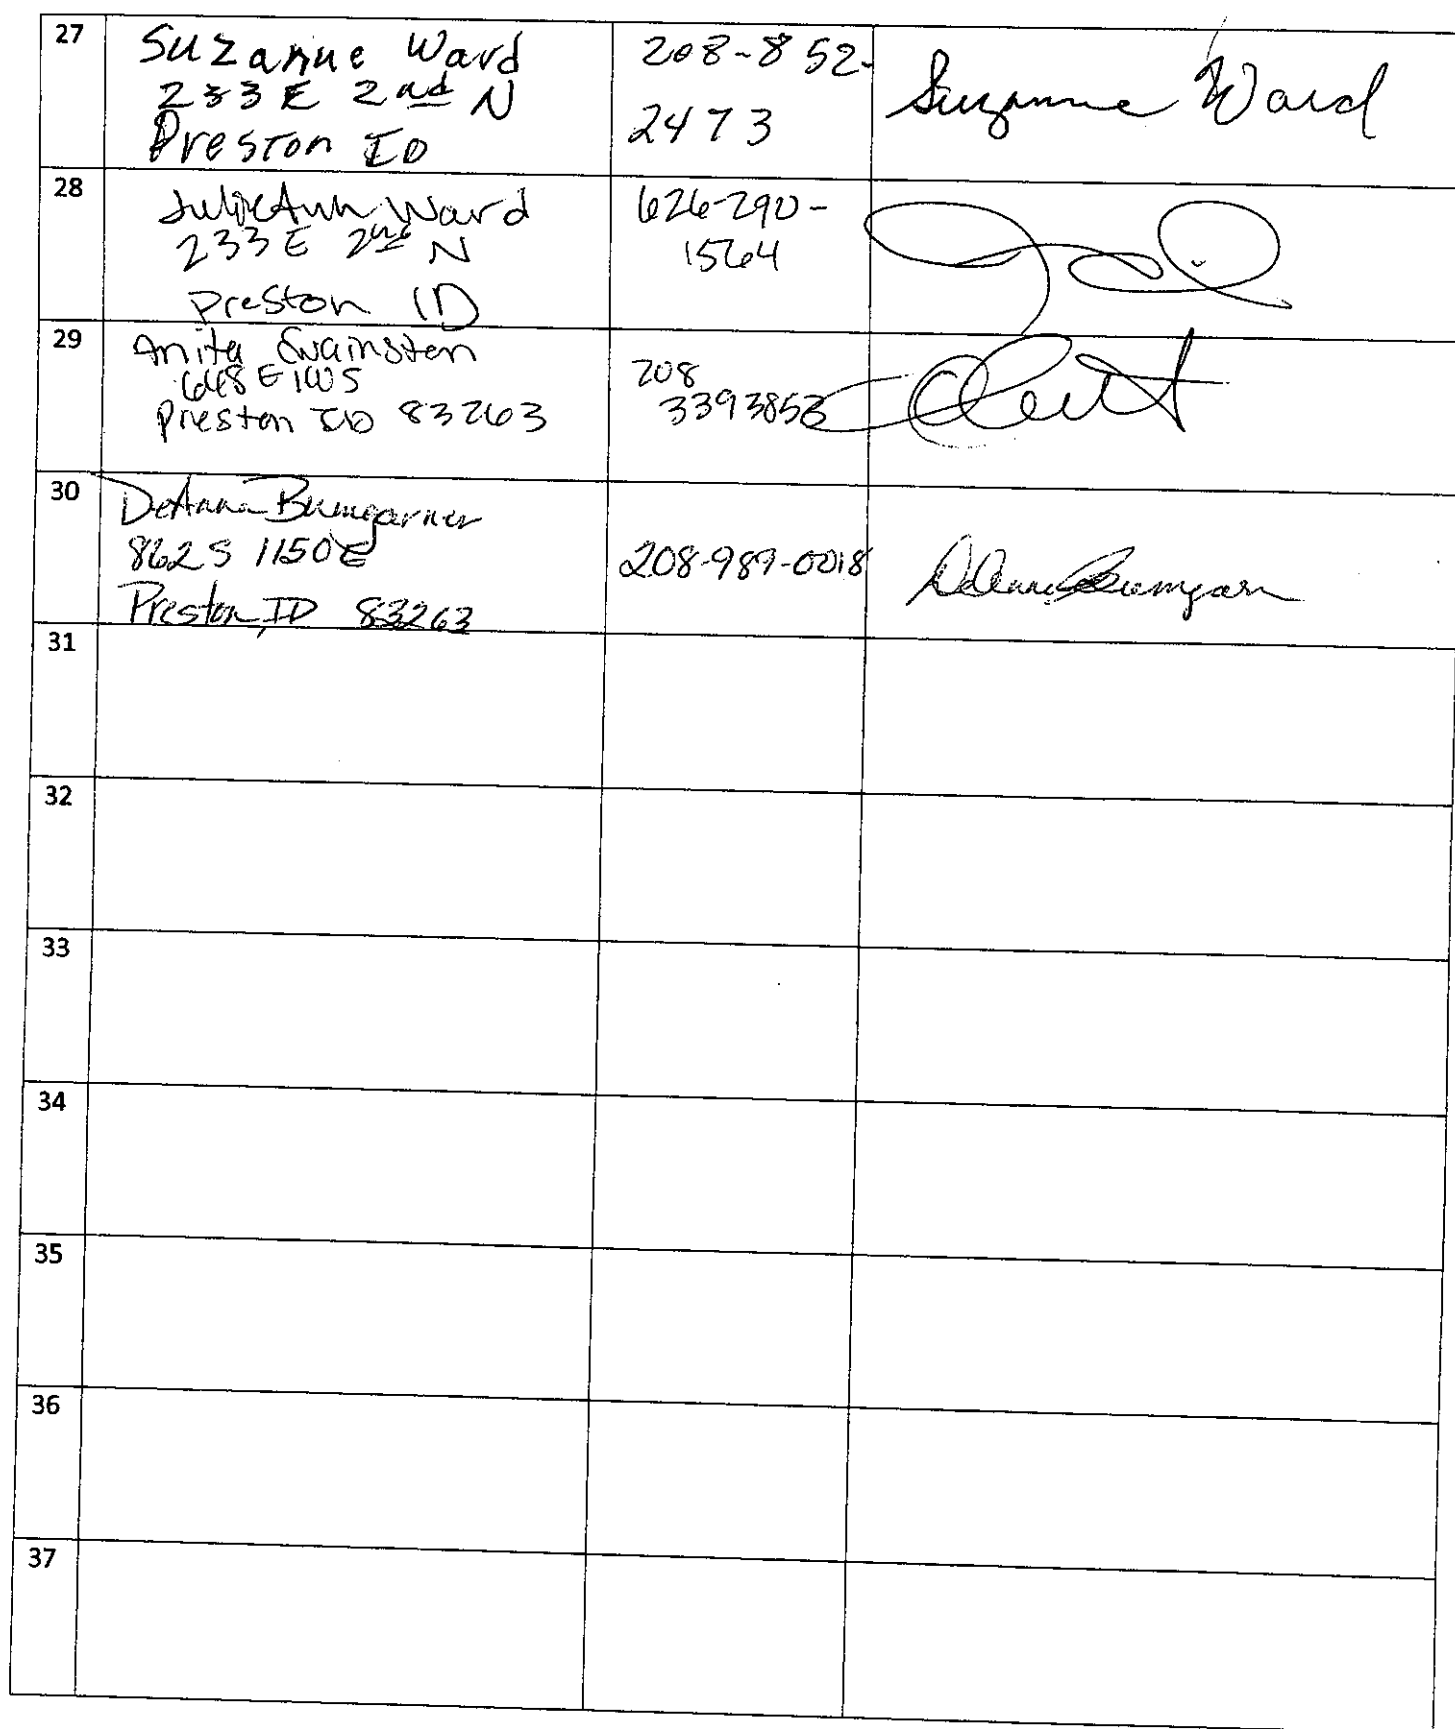 27
Suzanne Ward
233 E 2nd N
Preston ID
208-852-
2473
Suzanne Ward
28
JulieAnn Ward
233 E 2nd N
Preston ID
626-290-
1564
29
Anita Swainston
Preston ID 83263
208
3393853
30
DeAnna Bumgarner
862 S 1150 E
Preston, ID 83263
208-989-0018
DeAnna Bumgarn
31
32
33
34
35
36
37